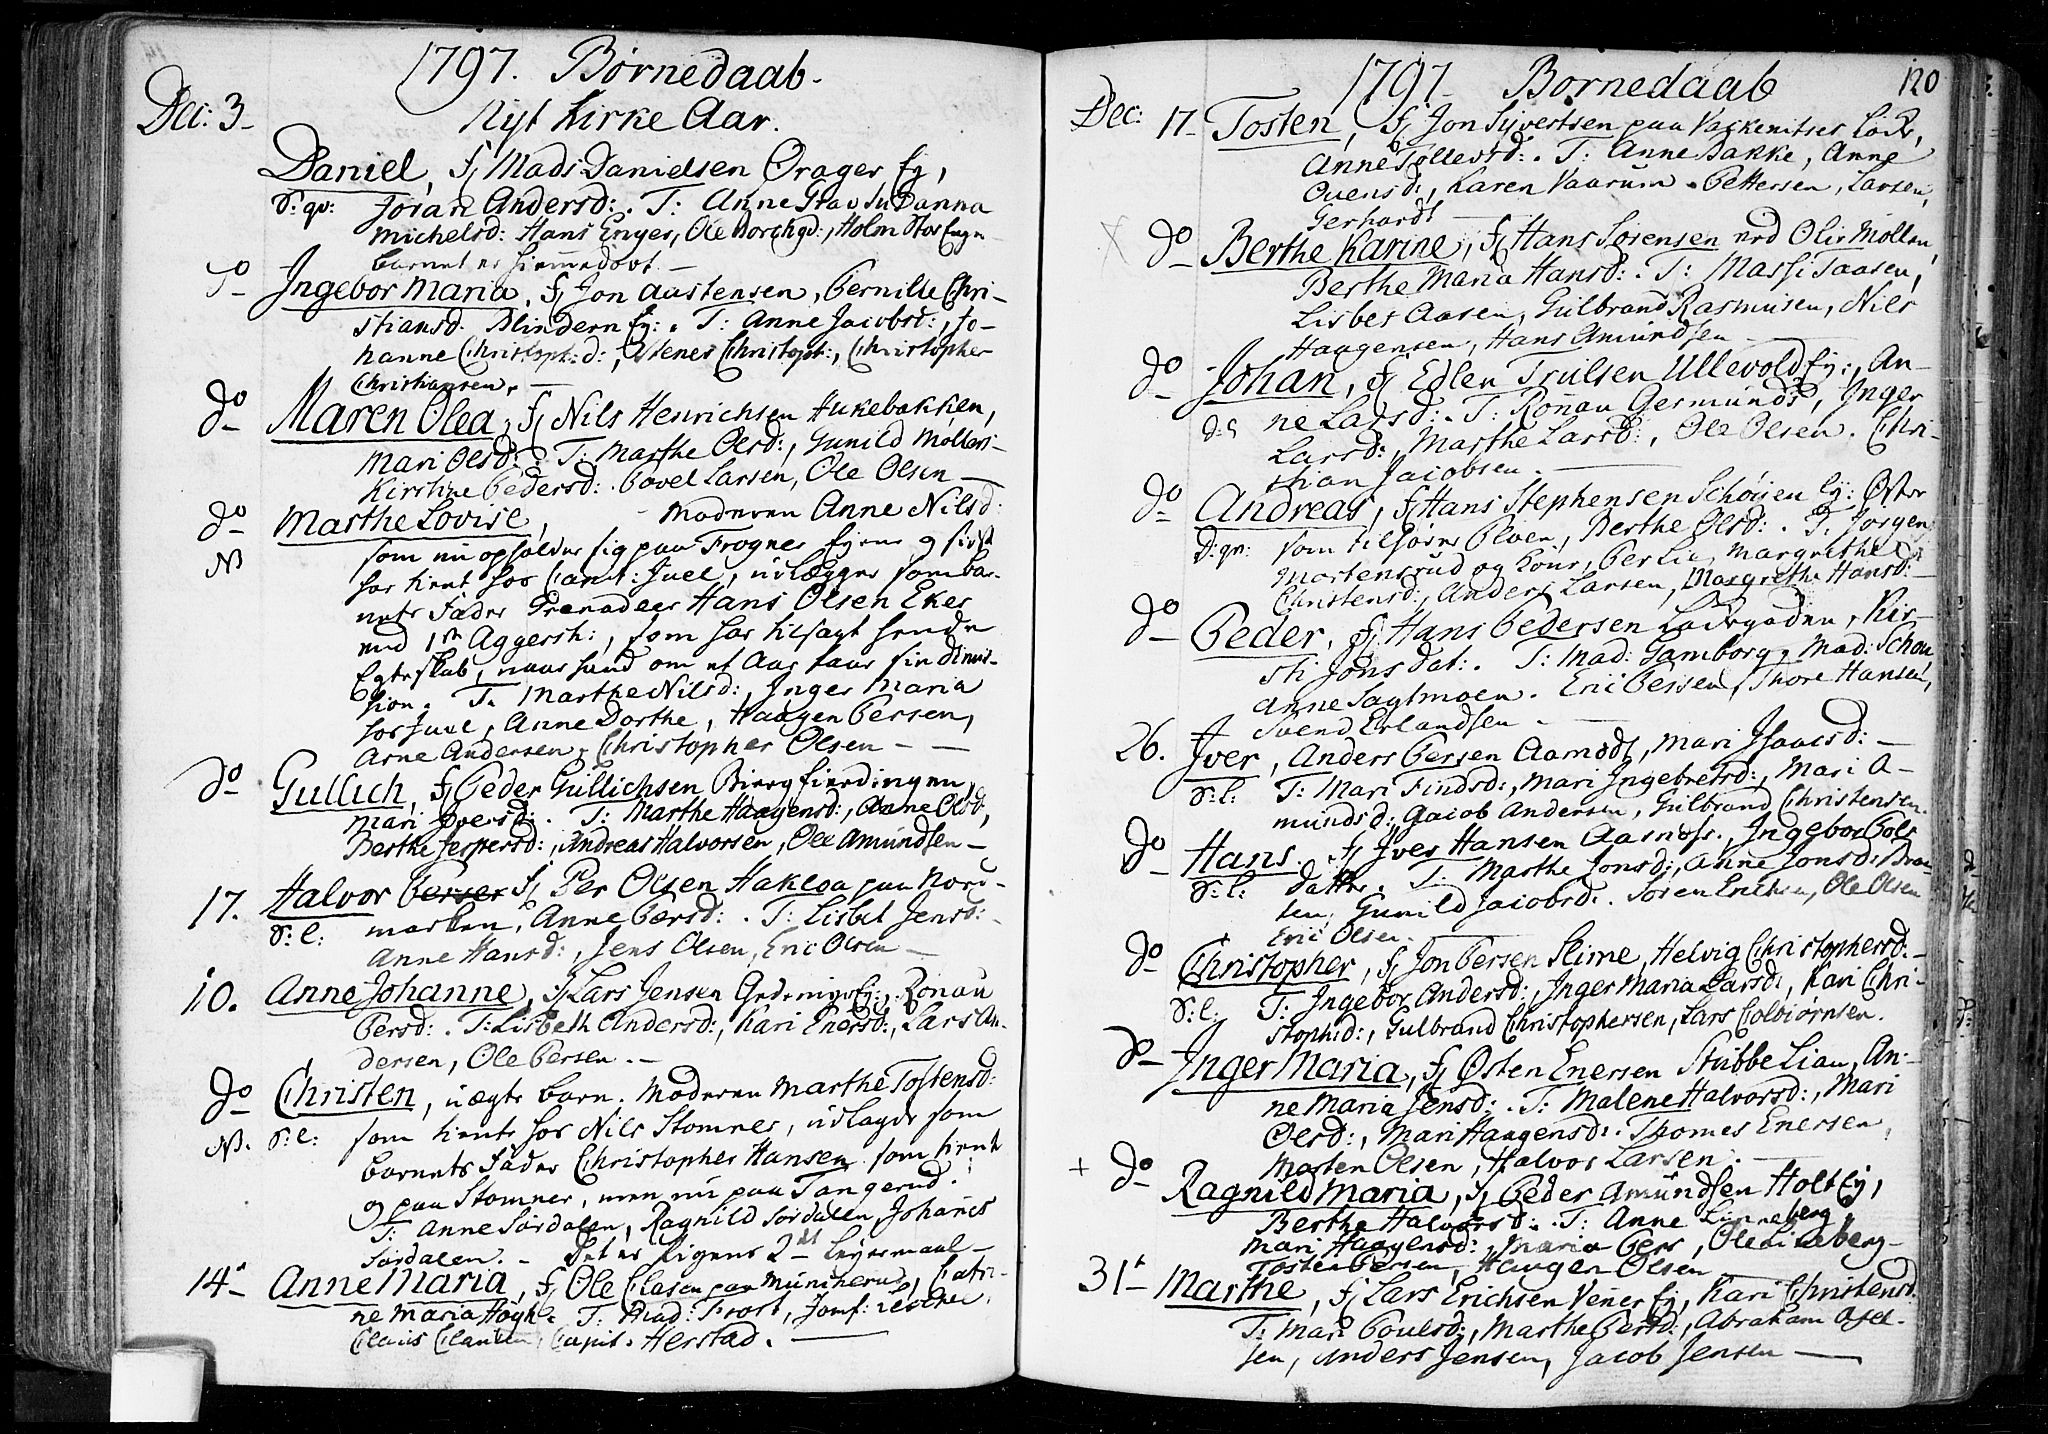 1797. Børnedaab.
Dec: 3. Nyt Kirke Aar.
Daniel, f/ Mads Danielsen Orager Ey,
D: qv: Joran Andersd:. T: Anne
Michelsd: Hans Enger, Ole Borchgd:, Holm
barnet er hiemedøbt. —
do Ingebor Maria, f/ Jon Austensen, Pernille Chri-
stiansd. Blindern Ey:. T: Anne Jacobsd:, Jo-
hanne Christoph:d:, Christoph:, Christopher
Christiansen. —
do Maren Olea, f/ Nils Henrichsen Hukebakken,
Mari Olsd:. T: Marthe Olsd:, Gunild
Kirstine Pedersd: Povel Larsen, Ole Olsen —
do Marthe Lovise, Moderen Anne Nilsd:
NB som nu opholder sig paa Frogner Eyene og sidst
har tient hos Capt: Juel, udlægger som bar-
nets Fader Grenadeer Hans Olsen Eker
ved 1ste Aggersh:, som har tilsagt hende
Egteskab, naar hand om et Aar faar sin dimis-
sion. T: Marthe Nilsd:, Inger Maria
hos Juul, Anne Dorthe, Haagen Persen,
Arne Andersen, Christopher Olsen — —
do Gullich, f/ Peder Gullichsen Biergfierdingen,
Mari Iversd:. T: Marthe Haagensd:, Anne Olsd:,
Berthe Jespersd:, Andreas Halvorsen, Ole Amundsen —
17. Halvor Perser f/ Per Olsen Hakloa paa Nord-
D: l: marken, Anne Persd:. T: Lisbet Jensd:
Anne Hansd:, Jens Olsen, Eric Olsen —
10. Anne Johanne, f/ Lars Jensen Ey:, Ronau
Persd:. T: Lisbeth Andersd:, Kari Enersd:, Lars An-
dersen, Ole Persen. —
do Christen, uægte barn. Moderen Marthe Tostensd:
NB. D: l: som tiente hos Nils Stomner, udlagde som
barnets Fader Christopher Hansen som tient
og paa Stomner, men nu paa Tangerud.
T: Anne Sørdalen, Ragnild Sørdalen, Johanes
Sørdalen. — Det er Pigens 2det Leyermaal —
14. Anne Maria, f/ Ole Clasen paa, Catri-
ne Maria Høgh. T: Mad: Frost, Jomf:
Claus Clausen, Capit. Herstad. —
1797 Børnedaab 120
Dec: 17 Tosten, f/ Jon Syvertsen paa
Anne Tollevsd:. T: Anne Bakke, Anne
Ovensd:, Karen Vaarum. Pettersen, Larsen,
Gerhardt —
do Berthe Karine, f/ Hans Sørensen ved Olie Møllen,
Berthe Maria Hansd:. T: Massi Taasen,
Lisbet Aasen, Gulbrand Rasmusen, Nils
Haagensen, Hans Amundsen —
do Johan, f/ Edlen Trulsen Ullevold Ey:, An-
ne Larsd:. T: Ronau Germunds, Inger
Larsd:, Marthe Larsd:, Ole Olsen. Chri-
stian Jacobsen. —
do Andreas, f/ Hans Stephensen Schøyen Ey: Øster
D: qv: som tilhører, Berthe Olsd:. T: Jørgen
Mortensrud og Kone, Per Lie, Margrethe
Christensd:, Anders Larsen, Margrethe Hansd:
do Peder, f/ Hans Pedersen Ladegaden, Kir-
sti Jons dat:. T: Mad: Tamborg, Mad: Schou
Anne Sagtmoen. Eric Persen, Thore Hansen,
Svend Erlandsen —
26. Iver, Anders Persen Aamodt, Mari Isaacsd: —
D: l: T: Mari Findsd:, Mari Ingebretsd:, Mari A-
mundsd: Jacob Andersen, Gulbrand Christensen.
do Hans. f/ Iver Hansen Aarnæss., Ingebor Pols
D: l: datter. T: Marthe Jonsd:, Anne Jonsd: Braa-
ten, Gunild Jacobsd:. Soren Ericksen, Ole Olsen
Eric Olsen. —
do Christopher, f/ Jon Persen Slime, Helvig Christophersd: —
D: l: T: Ingebor Andersd:, Inger Maria Larsd:, Kari Chri-
stophd:, Gulbrand Christophersen, Lars Colbiørnsen.
do Inger Maria, f/ Østen Enersen Stubbe Lian, An-
ne Maria Jensd:. T: Malene Halvorsd:, Mari
Olsd:, Mari Haagensd:. Thomes Enersen,
Morten Olsen, Halvor Larsen. —
+ do Ragnild Maria, f/ Peder Amundsen Holt Ey,
Berthe Halvorsd:. T: Anne Linneberg,
Mari Haagensd:, Maria Pers, Ole Lineberg —
Tosten Persen, Haagen Olsen —
31. Marthe, f/ Lars Erichsen Vener Ey, Kari Christensd.
T: Mari Poulsd:, Marthe Persd:, Abraham Osel-
sen, Anders Jensen, Jacob Jensen —